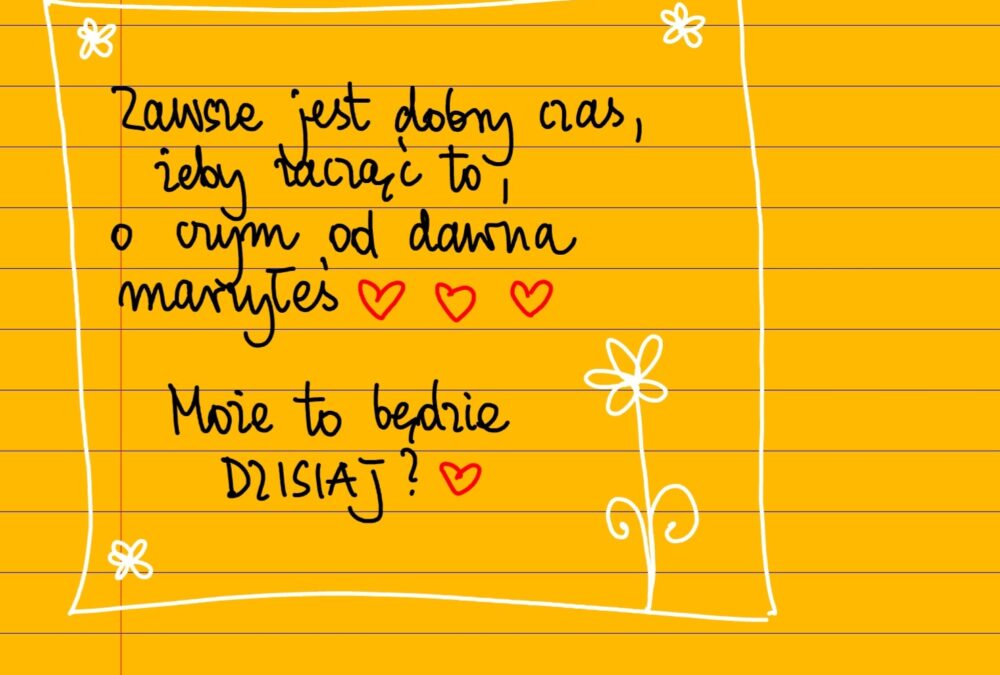 Zawsze jest dobry czas,
żeby zacząć to,
o czym od dawna
marzyłeś
Może to będzie
DZISIAJ?